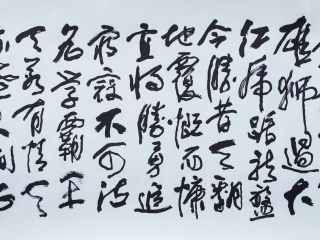 雄狮過大
江虎踞龙盤
今勝昔天翻
地覆慨而慷
宜将勝勇追
窮寇不可沽
名学霸王
天若有情天